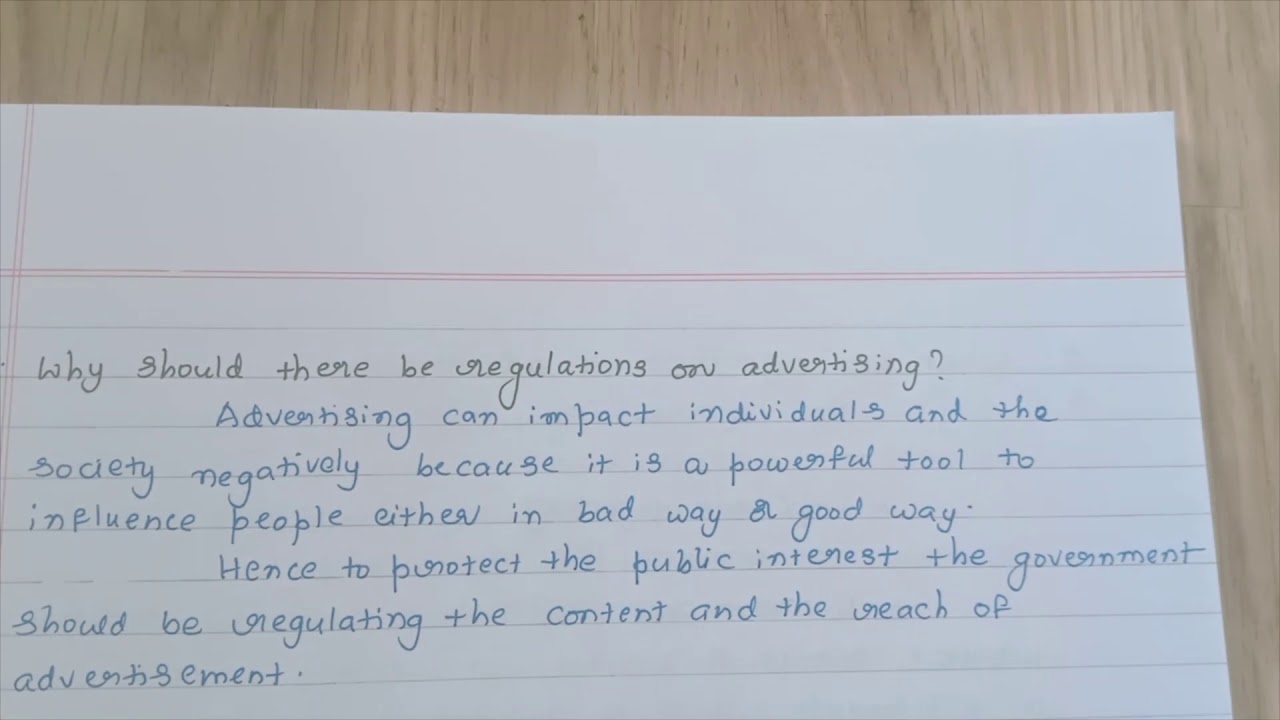 Why should there be regulations on advertising?
Advertising can impact individuals and the
society negatively because it is a powerful tool to
influence people either in bad way or good way.
Hence to protect the public interest the government
should be regulating the content and the reach of
advertisement.